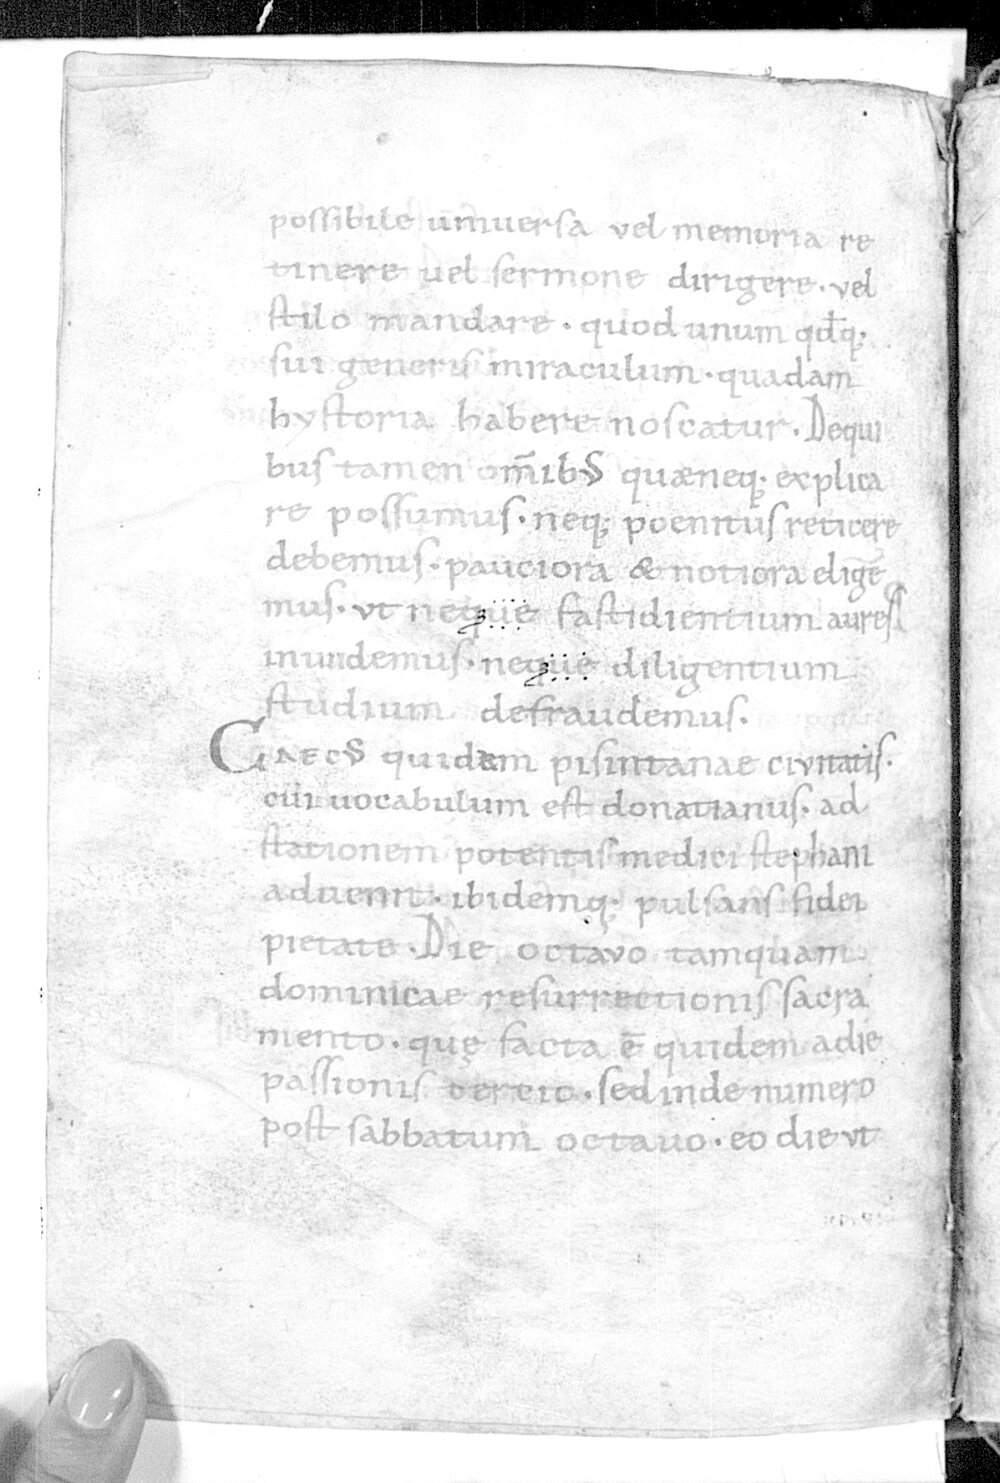 possibile universa vel memoria re
tinere uel sermone dirigere· vel
stilo mandare· quod unum qđq;
sui generis miraculum· quadam
hystoria habere noscatur. De qui
bus tamen om̄ibus quae neq; explica
re possumus· neq; poenitus reticere
debemus· pauciora & notiora eligē
mus· ut neque fastidientium aures
inundemus· neque diligentium
studium defraudemus.
Caecus quidam pisintanae civitatis·
cui uocabulum est donatianus· ad
stationem potentis medici stephani
aduenit· ibidemq; pulsans fidei
pietate. Die octavo tamquam
dominicae resurrectionis sacra
mento· quę facta ē quidem a die
passionis tercio· sed inde numero
post sabbatum octauo· eo die ut